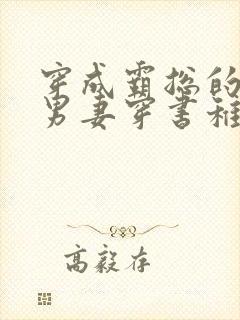 穿成霸总的
男妻穿书稚
高毅存